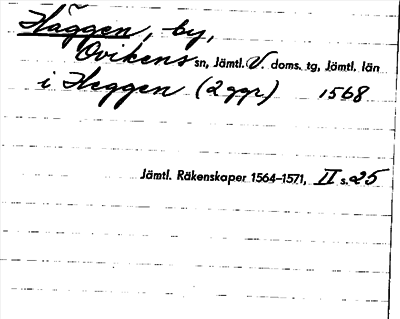 Häggen, by,
Ovikens sn, Jämtl. V. doms. tg, Jämtl. län
i Heggen (2 ggr) 1568
Jämtl. Räkenskaper 1564–1571, II s. 25